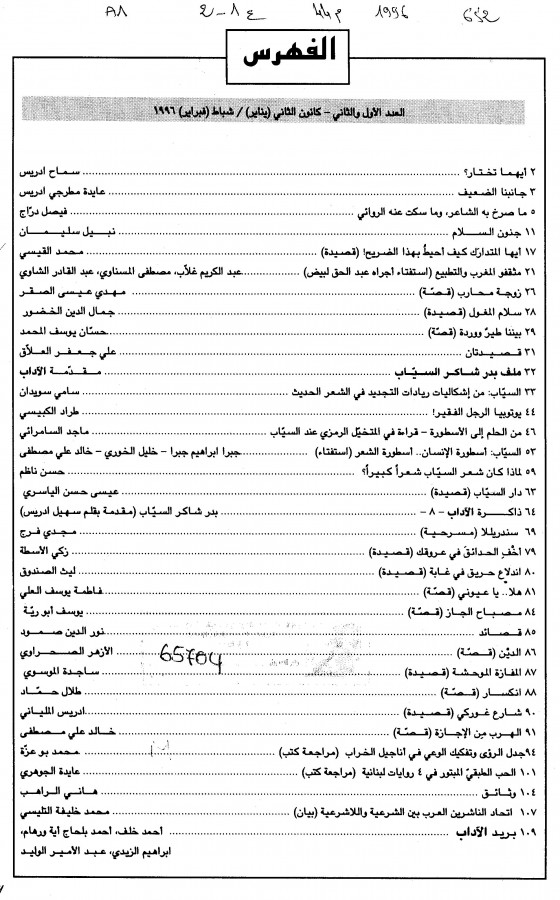 A1 2-1 ع 44م 1996 652
الفهرس
العدد الأول والثاني - كانون الثاني (يناير) / شباط (فبراير) ١٩٩٦
٢ أيهما تختار؟ سماح ادريس
٣ جانبنا الضعيف عايدة مطرجي ادريس
٥ ما صرخ به الشاعر، وما سكت عنه الروائي فيصل درّاج
١١ جنون السلام نبيل سليمان
١٧ أيها المتدارك كيف أحيطُ بهذا الضريح! (قصيدة) محمد القيسي
٢١ مثقفو المغرب والتطبيع (استفتاء أجراه عبد الحق لبيض) عبد الكريم غلاّب، مصطفى المسناوي، عبد القادر الشاوي
٢٦ زوجة محارب (قصّة) مهدي عيسى الصقر
٢٨ سلام المغول (قصيدة) جمال الدين الخضور
٢٩ بيننا طيرٌ ووردة (قصّة) حسّان يوسف المحمد
٣١ قصيدتان علي جعفر العلاّق
٣٢ ملف بدر شاكر السيّاب مقدّمة الآداب
٣٣ السيّاب: من إشكاليات ريادات التجديد في الشعر الحديث سامي سويدان
٤٤ يوتوبيا الرجل الفقير! طراد الكبيسي
٤٦ من الحلم إلى الأسطورة - قراءة في المتخيّل الرمزي عند السياب ماجد السامرائي
٥٣ السيّاب: أسطورة الإنسان.. أسطورة الشعر (استفتاء) جبرا ابراهيم جبرا - خليل الخوري - خالد علي مصطفى
٥٩ لماذا كان شعر السيّاب شعراً كبيراً؟ حسن ناظم
٦٣ دار السيّاب (قصيدة) عيسى حسن الياسري
٦٤ ذاكرة الآداب - ٨ - بدر شاكر السيّاب (مقدمة بقلم سهيل ادريس)
٦٩ سندريللا (مسرحية) مجدي فرج
٧٩ أخْفِ الحدائقَ في عروقك (قصيدة) زكي الأسطة
٨٠ اندلاع حريق في غابة (قصيدة) ليث الصندوق
٨١ هلا.. يا عيوني (قصّة) فاطمة يوسف العلي
٨٤ مصباح الجاز (قصّة) يوسف أبو ريّة
٨٥ قصائد نور الدين صمود
٨٦ الديْن (قصّة) الأزهر الصحراوي
65704
٨٧ المفازة الموحشة (قصيدة) ساجدة الموسوي
٨٨ انكسار (قصّة) طلال حمّاد
٩٠ شارع غوركي (قصيدة) ادريس الملياني
٩١ الهرب من الإجازة (قصّة) خالد علي مصطفى
٩٤ جدل الرؤى وتفكيك الوعي في أناجيل الخراب (مراجعة كتب) محمد بو عزّة
١٠١ الحب الطبقيّ المبتور في ٤ روايات لبنانية (مراجعة كتب) عايدة الجوهري
١٠٤ وثائق هاني الراهب
١٠٧ اتحاد الناشرين العرب بين الشرعية واللاشرعية (بيان) محمد خليفة التليسي
١٠٩ بريد الآداب أحمد خلف، أحمد بلحاج آية ورهام،
ابراهيم الزيدي، عبد الأمير الوليد